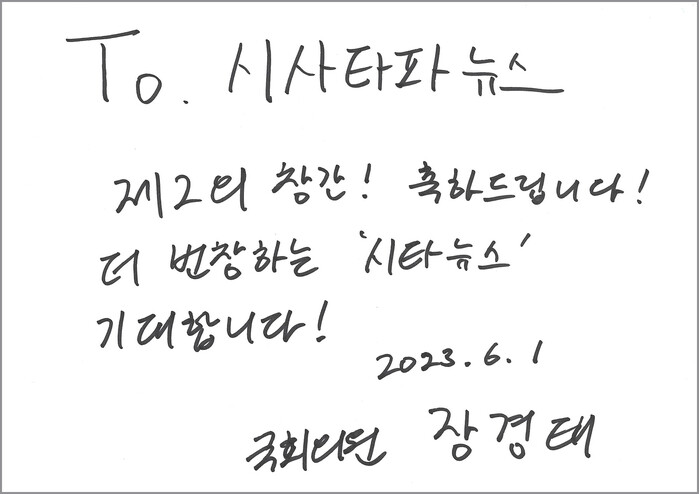 To. 시사타파뉴스
제2의 창간! 축하드립니다!
더 번창하는 '시타뉴스'
기대합니다!
2023. 6. 1
국회의원 장경태